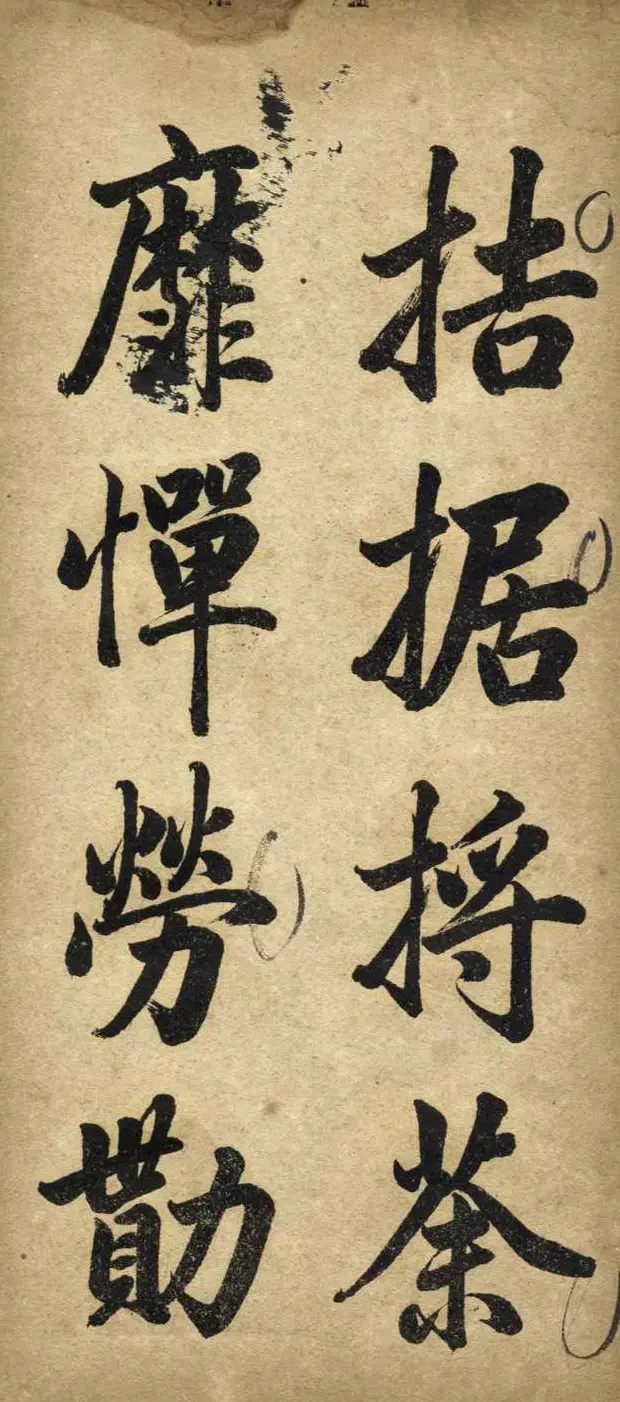 拮据捋荼
靡憚勞勩